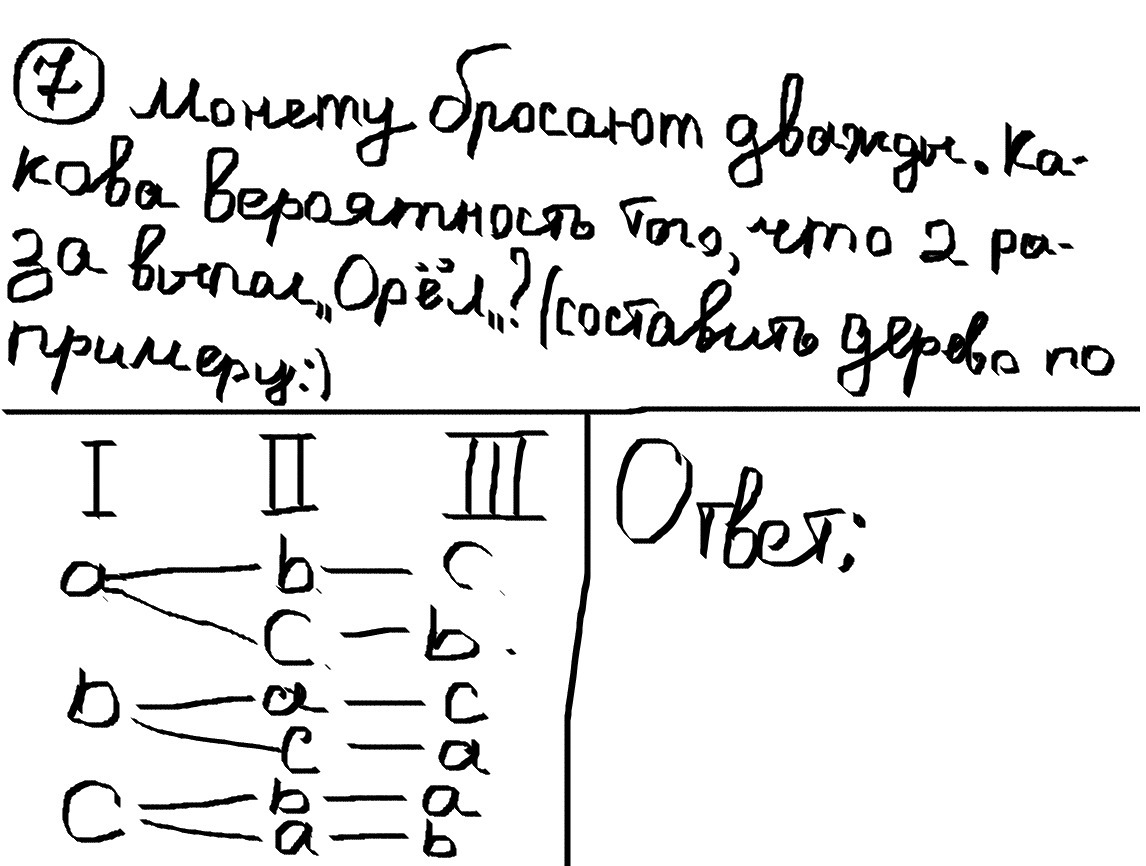 7 Монету бросают дважды. Ка-
кова вероятность того, что 2 ра-
за выпал „Орёл„? (составить дерево по
примеру:)
I II III
a b c
c b.
b a c
c a
c b a
a b
Ответ: